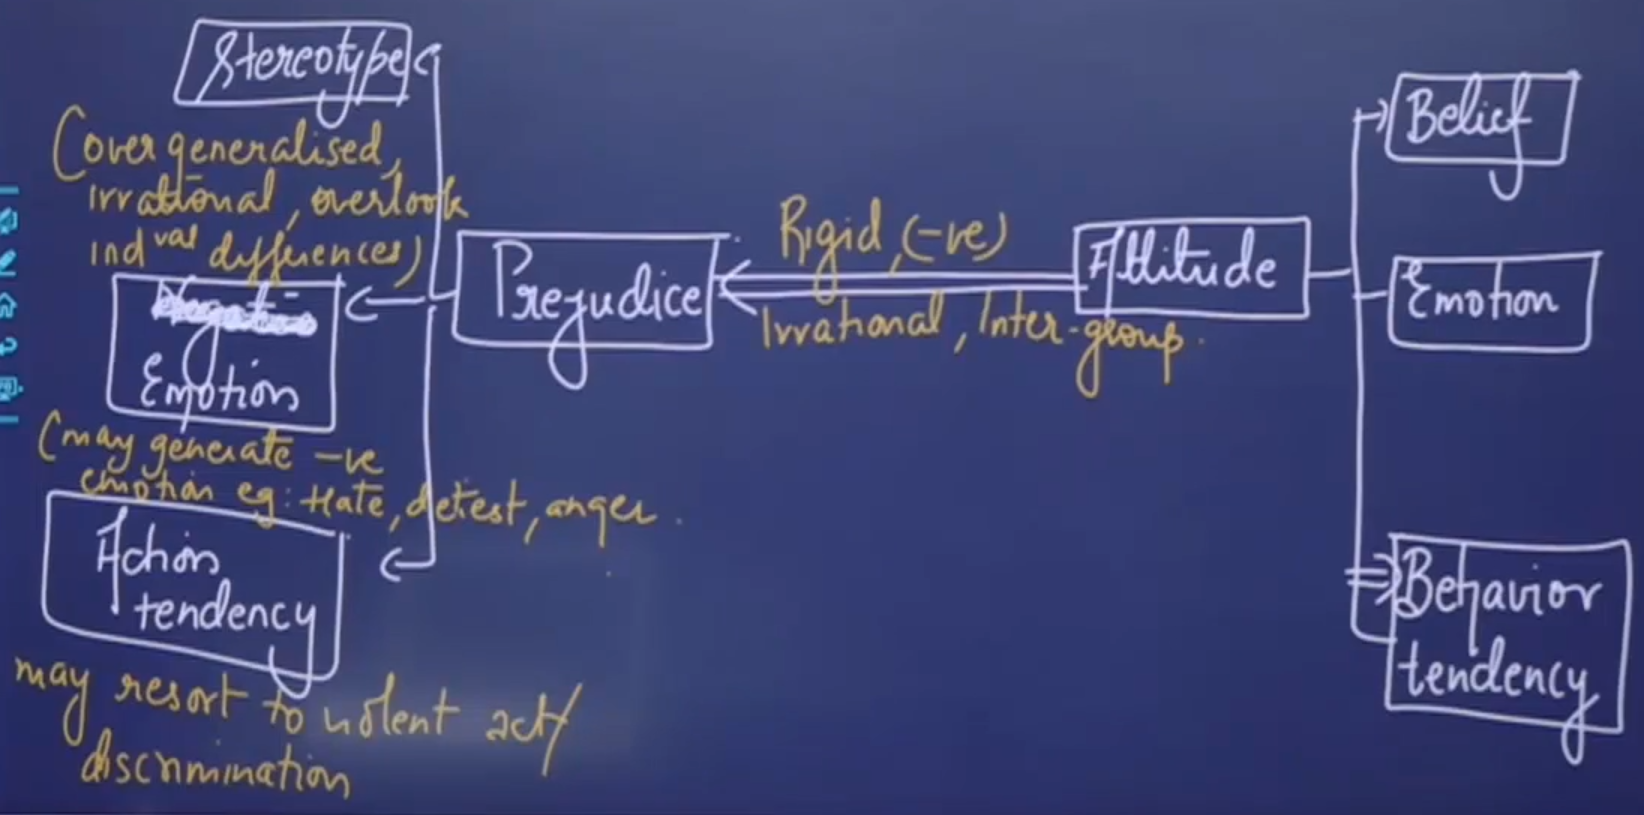 Stereotype
(over generalised,
irrational, overlook
ind val differences)
Emotion
(may generate -ve
emotion eg: Hate, detest, anger.
Action
tendency
may resort to violent act/
discrimination
Prejudice
Rigid, (-ve)
Irrational, Inter-group.
Attitude
Belief
Emotion
Behavior
tendency